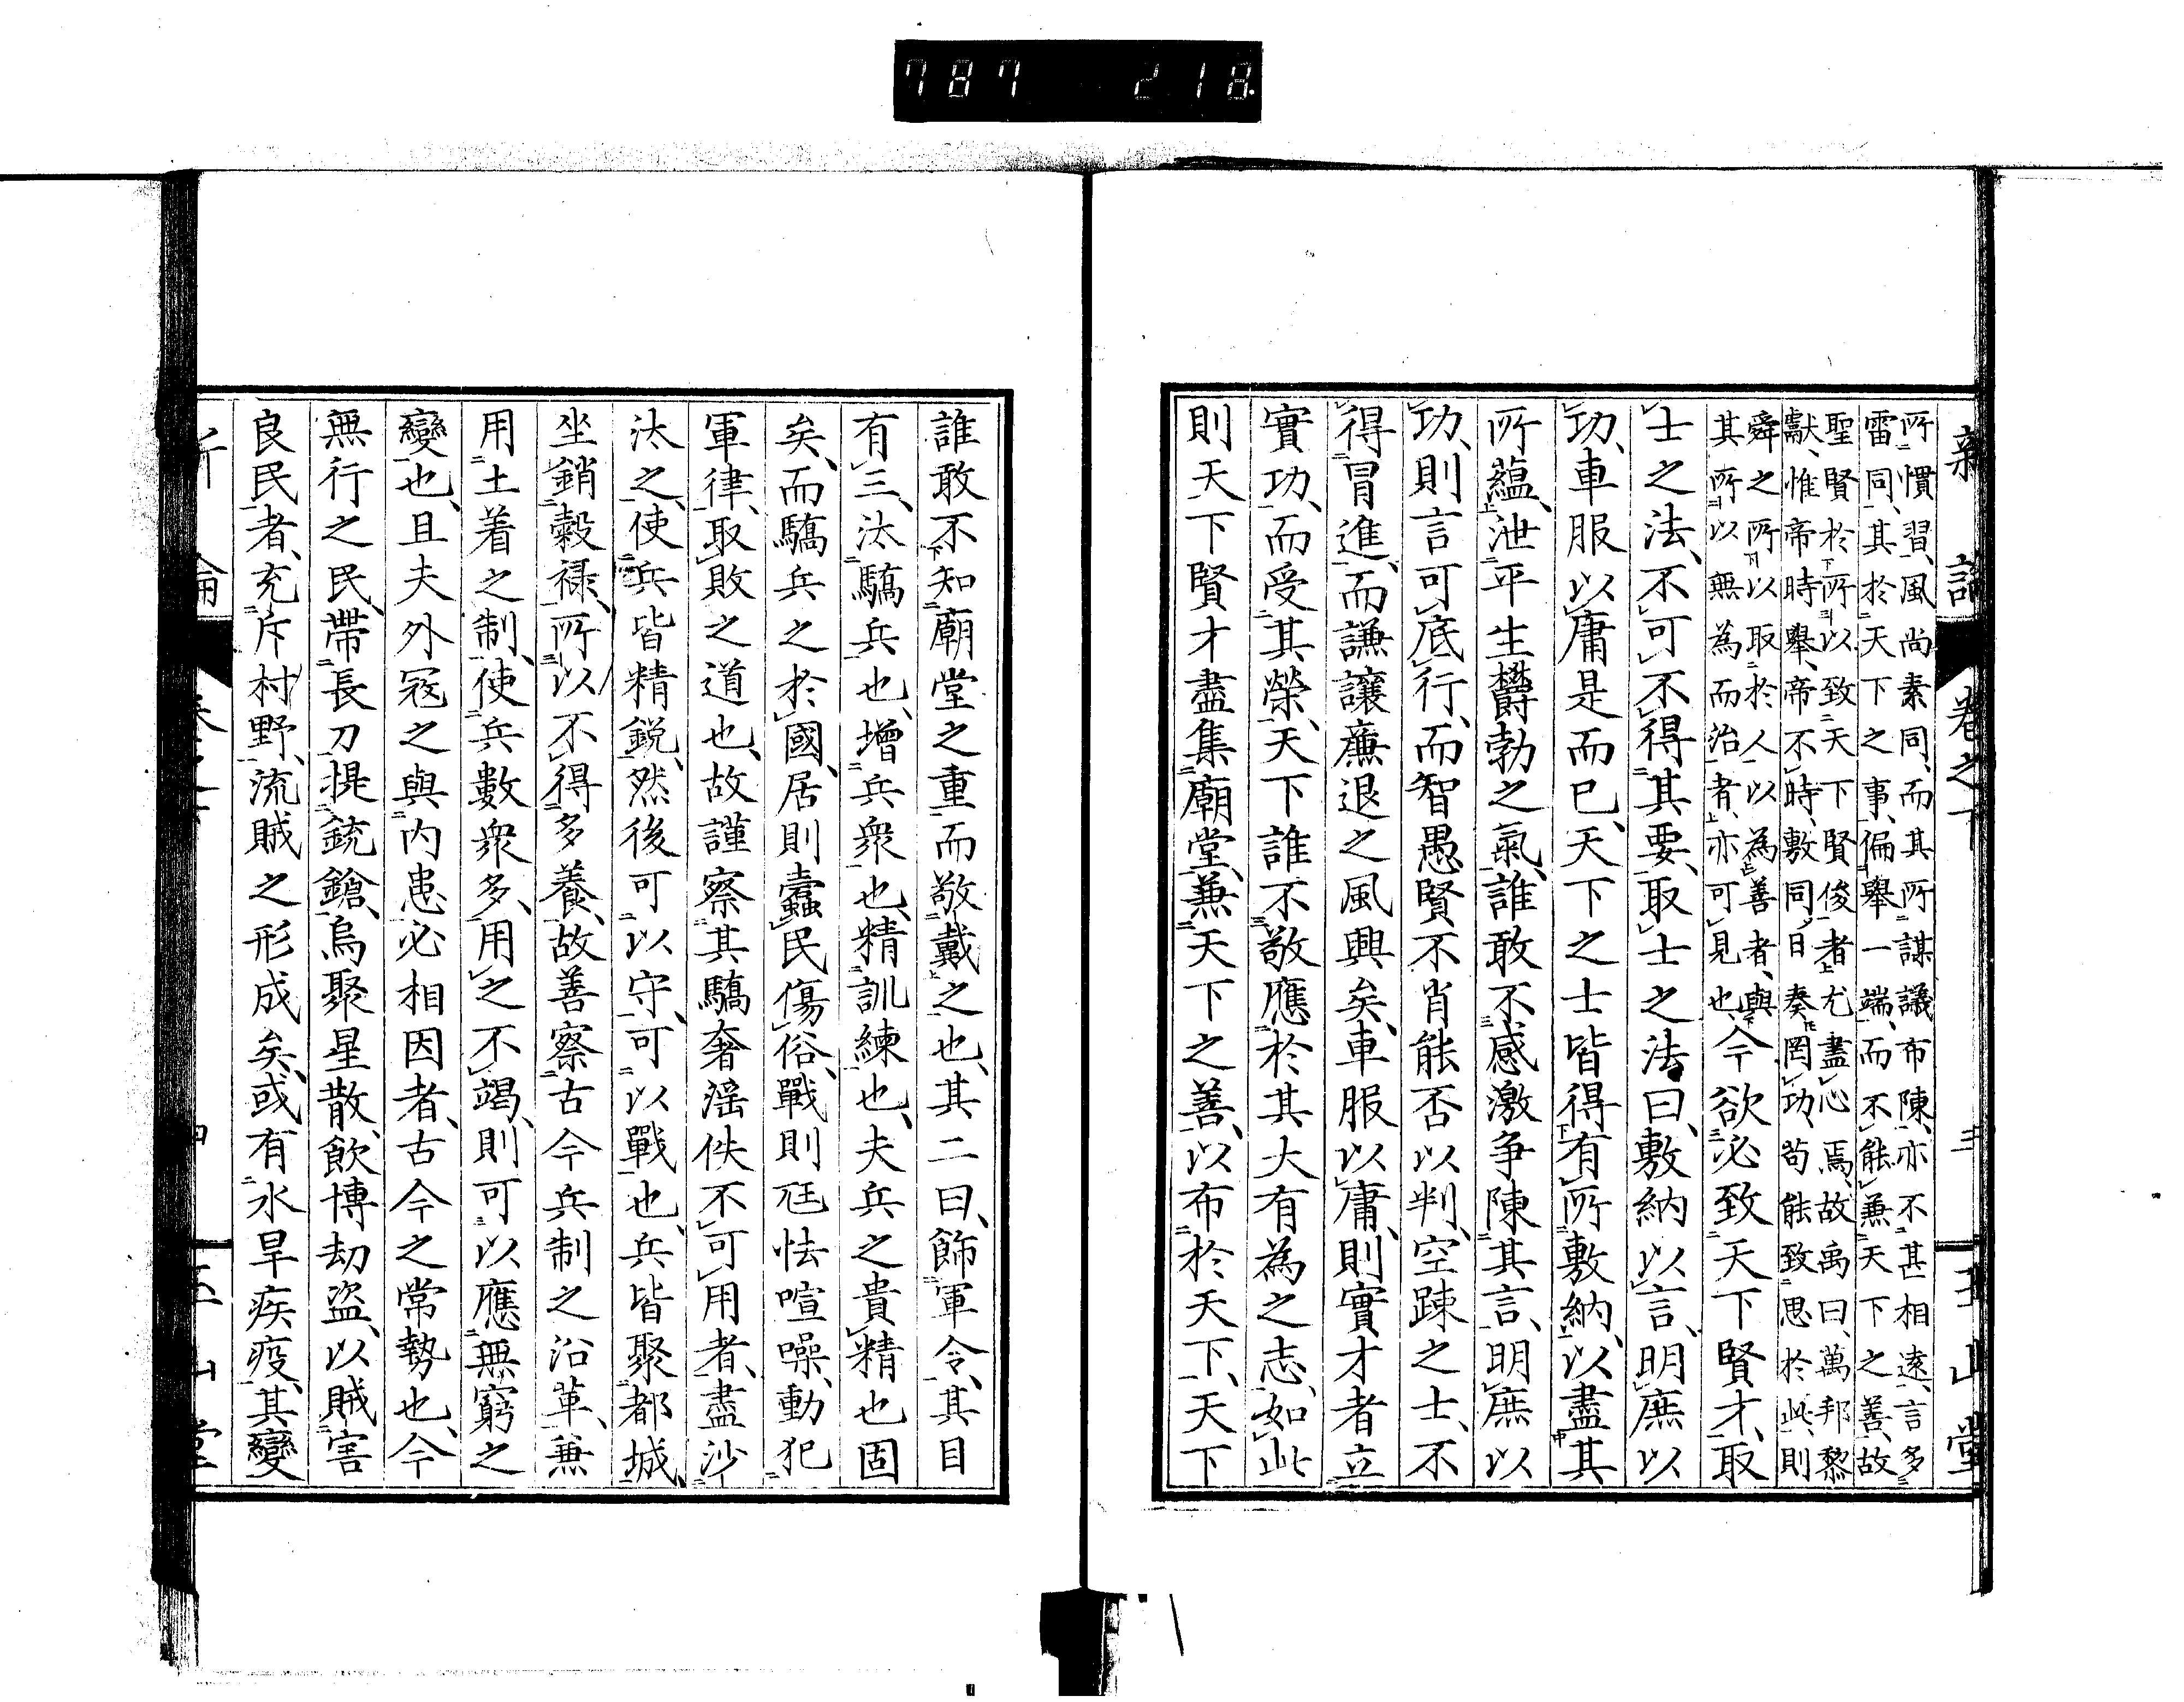 787 218
新論 卷之下 三 玉山堂
所慣習、風尚素同、而其所謀議布陳、亦不甚相遠、言多
雷同、其於天下之事、偏舉一端、而不能兼天下之善、故
聖賢於所以致天下賢俊者尤盡心焉、故禹曰、萬邦黎
獻、惟帝時舉、帝不時、敷同日奏罔功、苟能致思於此、則
舜之所以取於人以為善者、與
其所以無為而治者、亦可見也、
今欲必致天下賢才、取
士之法、不可不得其要、取士之法曰、敷納以言、明庶以
功、車服以庸是而已、天下之士皆得有所敷納、以盡其
所蘊、泄平生欝勃之氣、誰敢不感激争陳其言、明庶以
功、則言可底行、而智愚賢不肖能否以判、空踈之士、不
得冒進、而謙讓廉退之風興矣、車服以庸、則實才者立
實功、而受其榮、天下誰不敬應於其大有為之志、如此
則天下賢才盡集廟堂、兼天下之善、以布於天下、天下
誰敢不知廟堂之重而敬戴之也、其二曰、飾軍令、其目
有三、汰驕兵也、增兵衆也、精訓練也、夫兵之貴精也固
矣、而驕兵之於國、居則蠹民傷俗、戰則尫怯喧噪、動犯
軍律、取敗之道也、故謹察其驕奢滛佚不可用者、盡沙
汰之、使兵皆精鋭、然後可以守、可以戰也、兵皆聚都城、
坐銷穀禄、所以不得多養、故善察古今兵制之沿革、兼
用土着之制、使兵數衆多、用之不竭、則可以應無窮之
變也、且夫外冦之與内患必相因者、古今之常勢也、今
無行之民、帶長刀提銃鎗、烏聚星散、飲博劫盗、以賊害
良民者、充斥村野、流賊之形成矣、或有水旱疾疫、其變